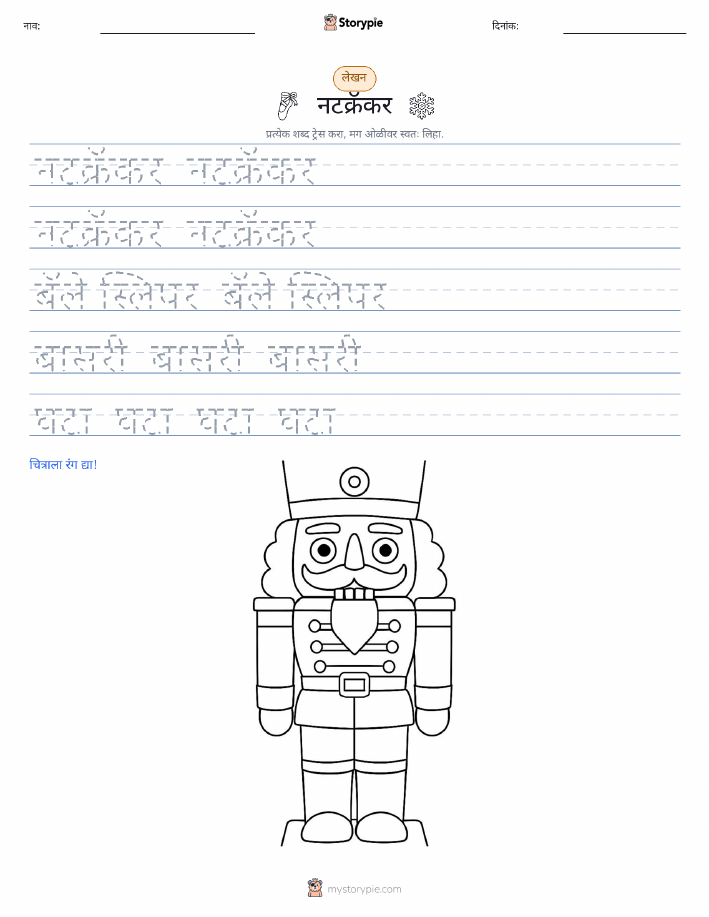 नाव:
Storypie
दिनांक:
लेखन
नटक्रॅकर
प्रत्येक शब्द ट्रेस करा, मग ओळीवर स्वतः लिहा.
नटक्रॅकर नटक्रॅकर
नटक्रॅकर नटक्रॅकर
बॅले स्लिपर बॅले स्लिपर
बासरी बासरी बासरी
घंटा घंटा घंटा घंटा
चित्राला रंग द्या!
mystorypie.com